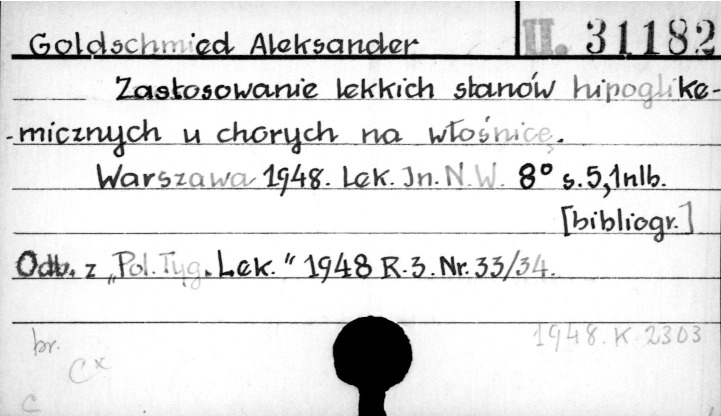 Goldschmied Aleksander II. 31182
Zastosowanie lekkich stanów hipoglike-
-micznych u chorych na włośnicę.
Warszawa 1948. Lek. In. N.W. 8° s.5,1nlb.
[bibliogr.]
Odb. z „Pol. Tyg. Lek." 1948 R.3. Nr. 33/34.
br. 1948. K 2303
Cx
C